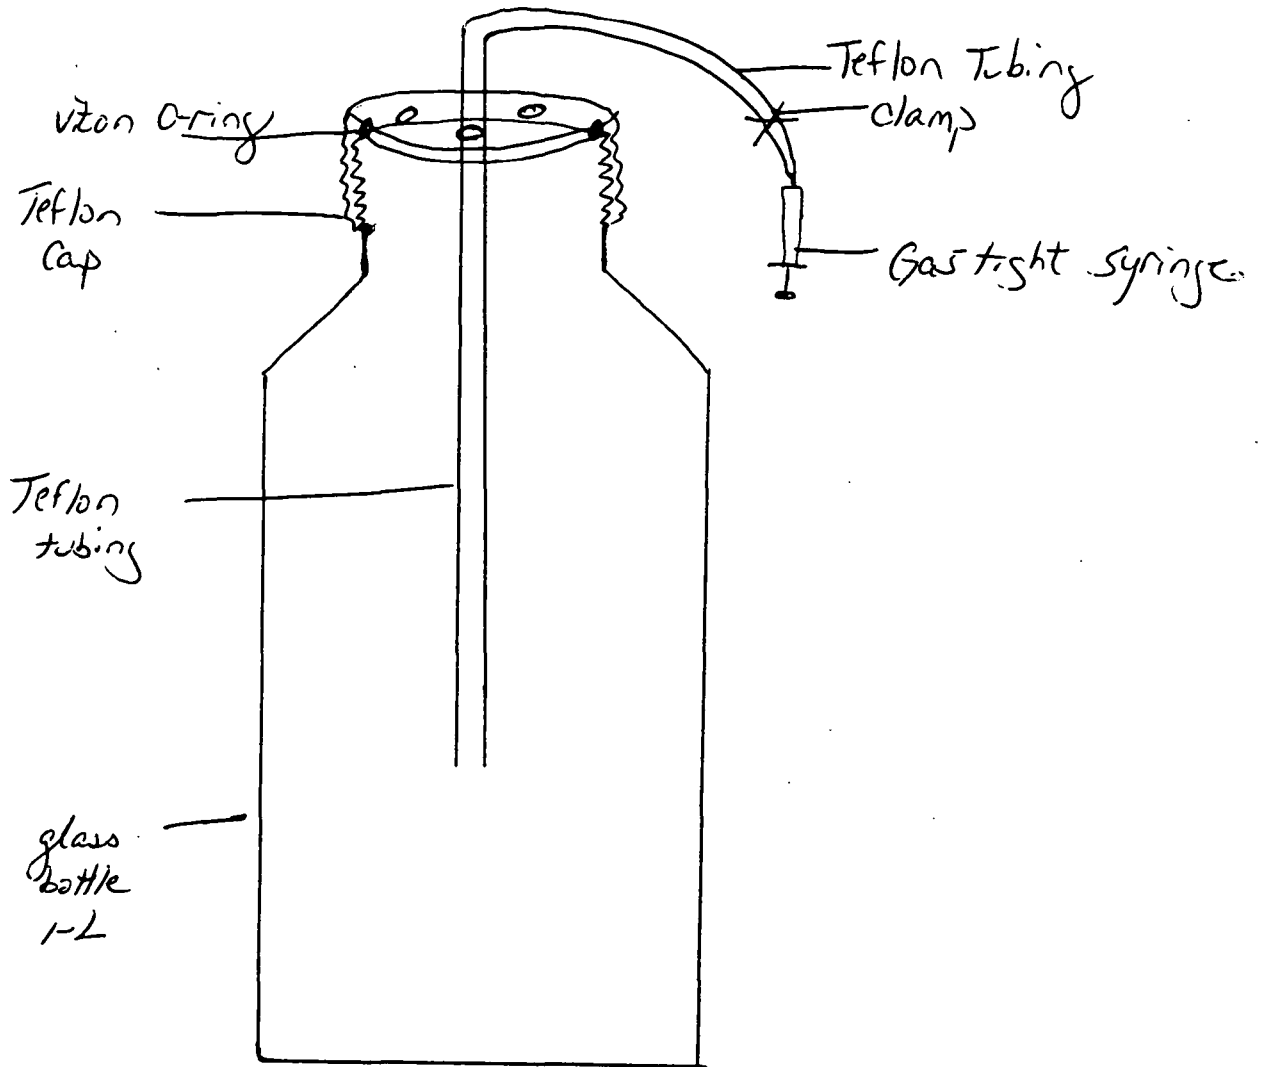 Teflon Tubing
clamp
viton O-ring
Teflon
Cap
Gas tight syringe
Teflon
tubing
glass
bottle
1-L